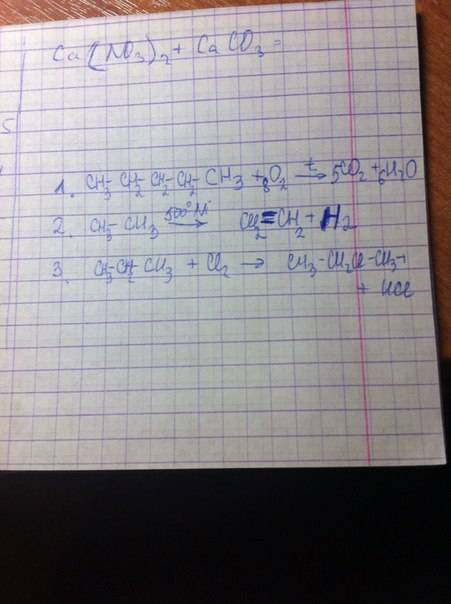 Ca(NO3)2 + CaCO3 =
5
1. CH3-CH2-CH2-CH2-CH3 + 8O2 t→ 5CO2 + 6H2O
2. CH3-CH3 500° Ni→ CH2=CH2 + H2
3. CH3-CH2-CH3 + Cl2 → CH3-CH2Cl-CH3+
+ HCl